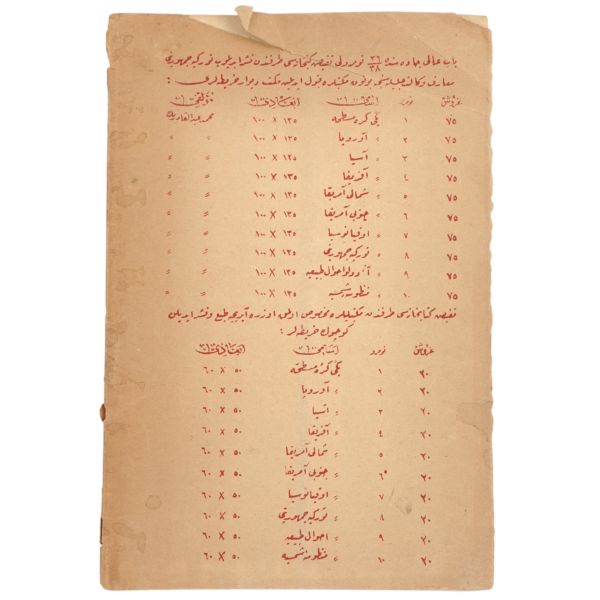 باب عالی جاده سنده ٣٦/٣٨ نومرولی تفیض کتبخانه‌سی طرفندن نشر ایدیلوب تورکیه جمهوریتی
معارف وکالت جلیله‌سنجه موقون مکتبلره قبول ایدیلن مکتب دیوار خریطه‌لری :
غروش نومرو اسامیسی ابعادی مؤلفی
٧٥ ١ یکی کرۀ مسطحه ١٣٥ X ١٠٠ محمد عبدالقادر بك
٧٥ ٢ » آوروپا ١٣٥ X ١٠٠ » »
٧٥ ٣ » آسیا ١٣٥ X ١٠٠ » »
٧٥ ٤ » آفریقا ١٣٥ X ١٠٠ » »
٧٥ ٥ » شمالی آمریقا ١٣٥ X ١٠٠ » »
٧٥ ٦ » جنوبی آمریقا ١٣٥ X ١٠٠ » »
٧٥ ٧ » اوقیانوسیا ١٣٥ X ١٠٠ » »
٧٥ ٨ » تورکیه جمهوریتی ١٣٥ X ١٠٠ » »
٧٥ ٩ » آنادولو احوال طبیعیه ١٣٥ X ١٠٠ » »
٧٥ ١٠ » منظومۀ شمسیه ١٣٥ X ١٠٠ » »
تفیض کتابخانه‌سی طرفندن مکتبلیلره مخصوص اولمق اوزره آیریجه طبع و نشر ایدیلن
کوچوك خریطه‌لر :
غروش نومرو اسامیسی ابعادی
٣٠ ١ یکی کرۀ مسطحه ٥٠ X ٦٠
٣٠ ٢ » آوروپا ٥٠ X ٦٠
٣٠ ٣ » آسیا ٥٠ X ٦٠
٣٠ ٤ » آفریقا ٥٠ X ٦٠
٣٠ ٥ » شمالی آمریقا ٥٠ X ٦٠
٣٠ ٦ » جنوبی آمریقا ٥٠ X ٦٠
٣٠ ٧ » اوقیانوسیا ٥٠ X ٦٠
٣٠ ٨ » تورکیه جمهوریتی ٥٠ X ٦٠
٣٠ ٩ » احوال طبیعیه ٥٠ X ٦٠
٣٠ ١٠ » منظومۀ شمسیه ٥٠ X ٦٠